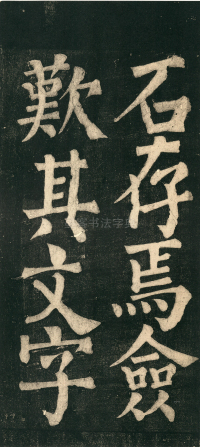 石存焉僉
歎其文字